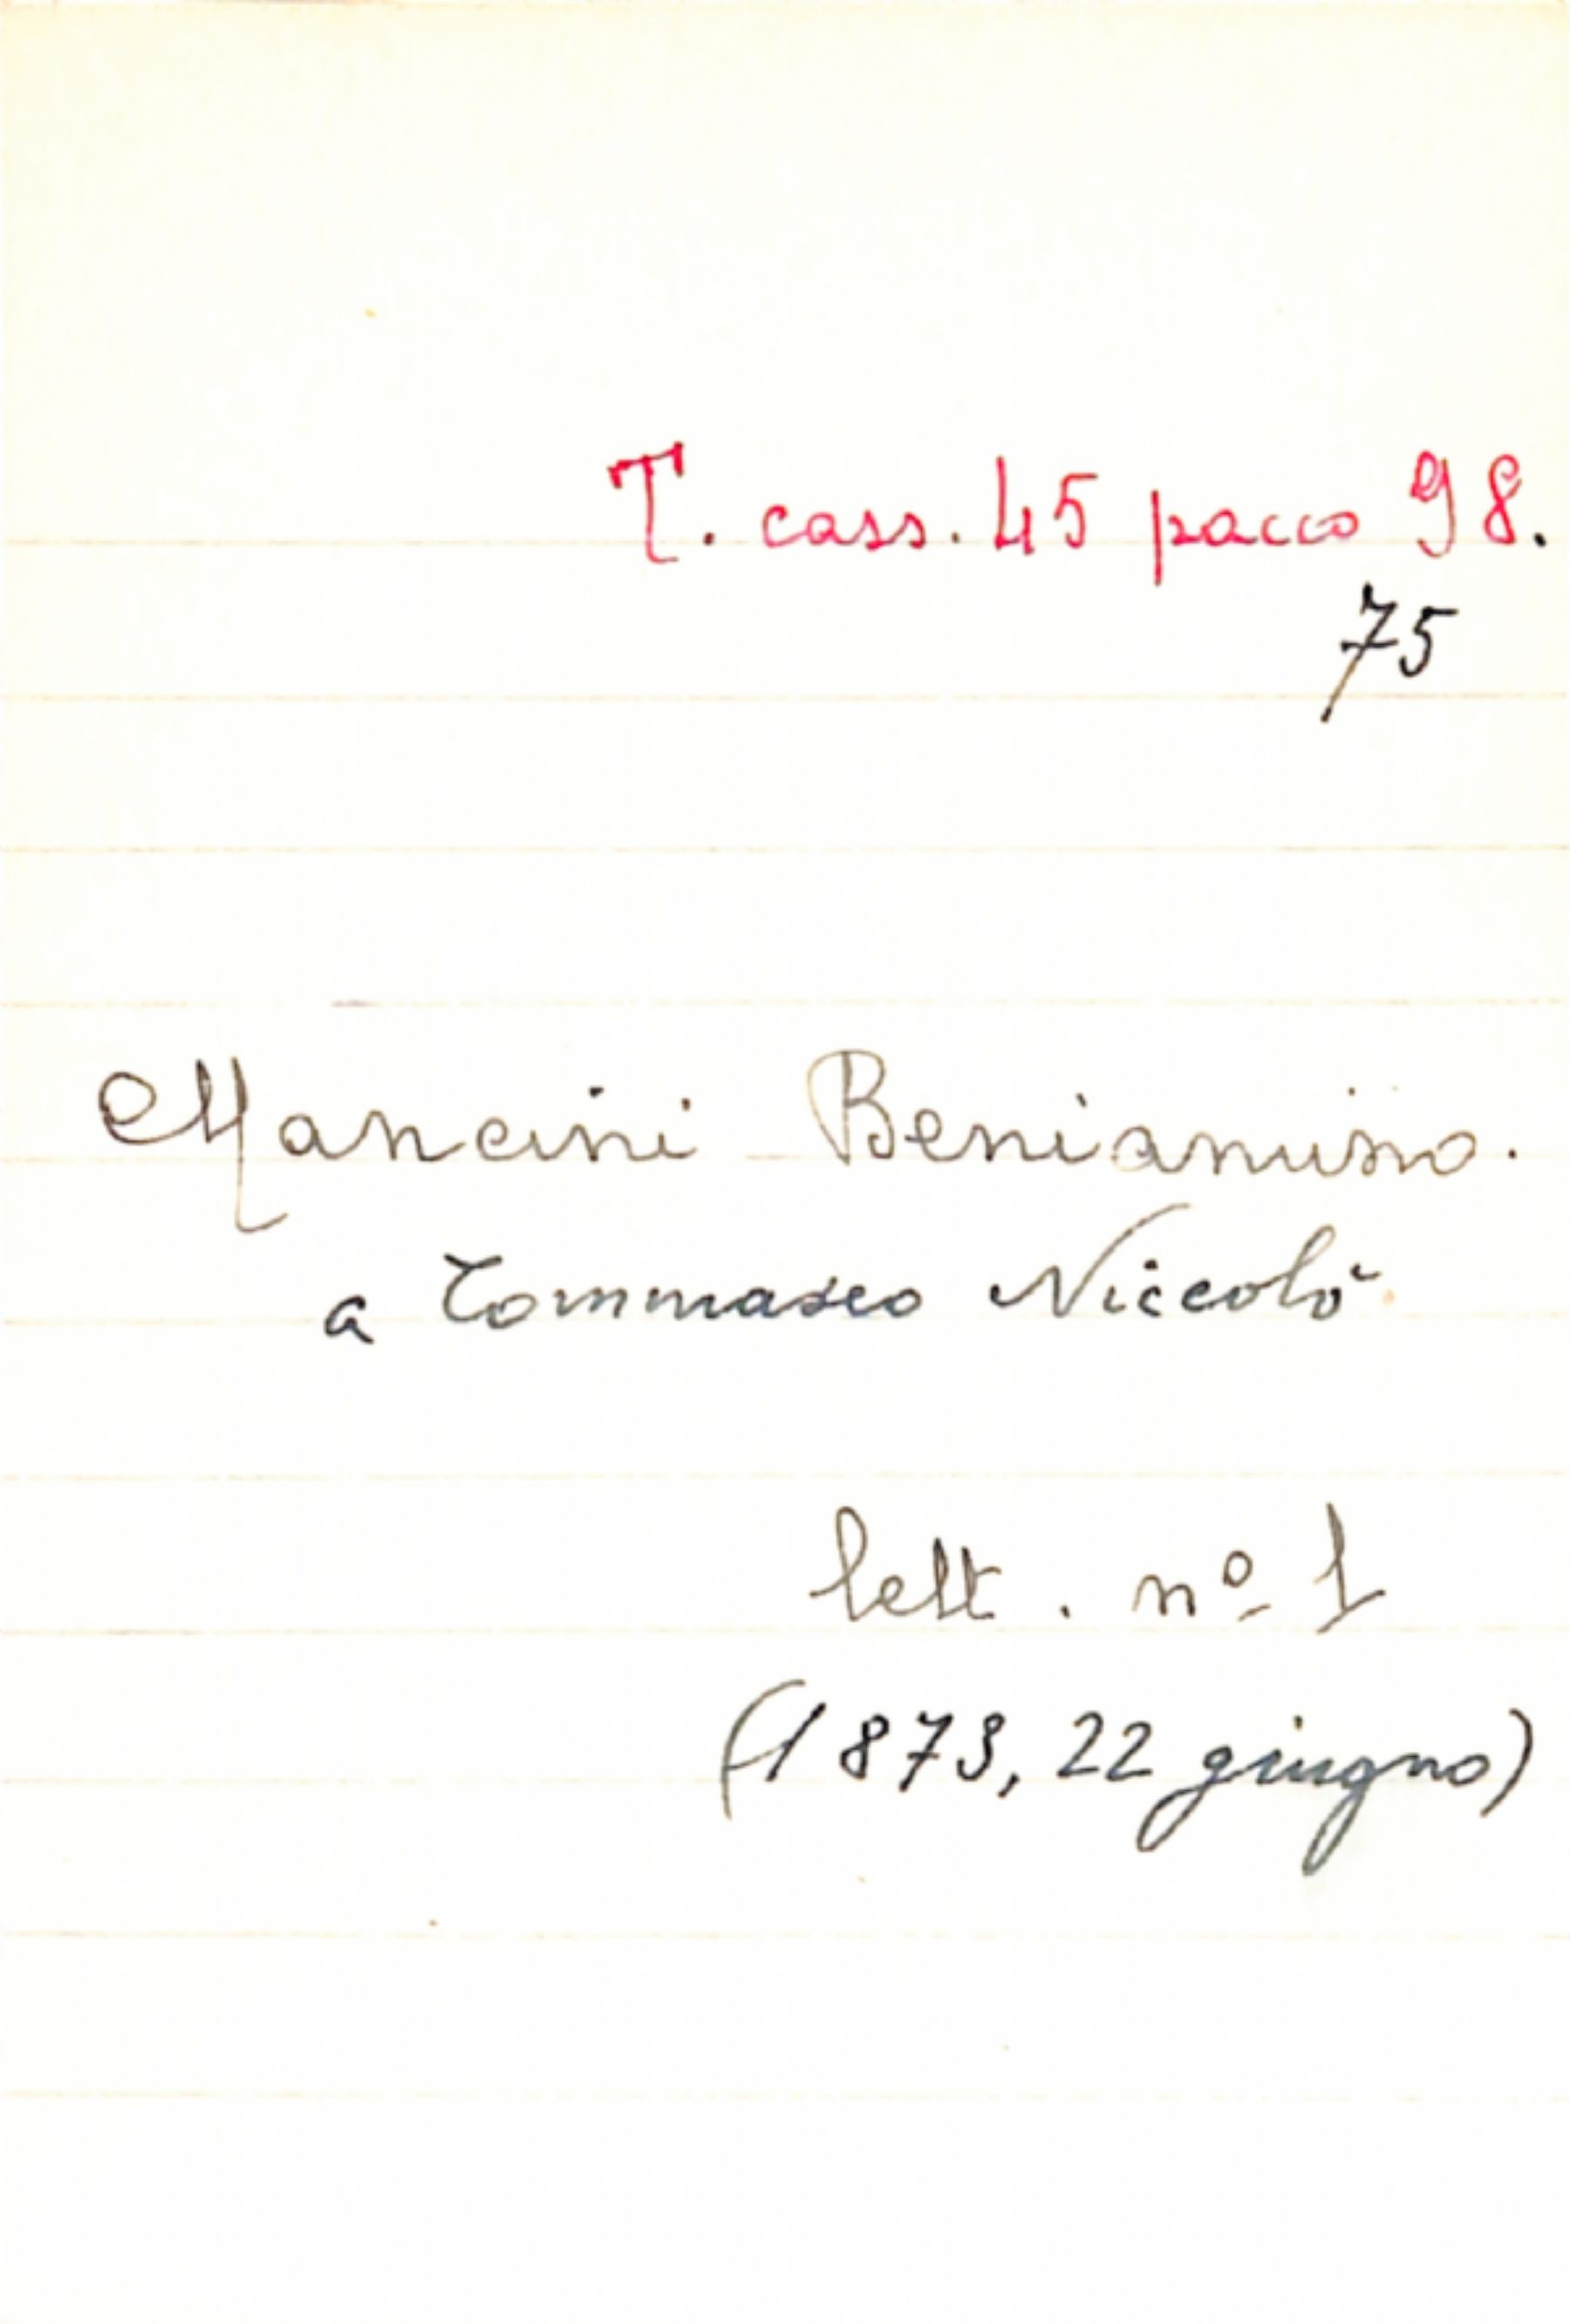 T. cass. 45 pacco 98.
75
Mancini Beniamino.
a Tommaseo Niccolò
lett. nº 1
(1873, 22 giugno)